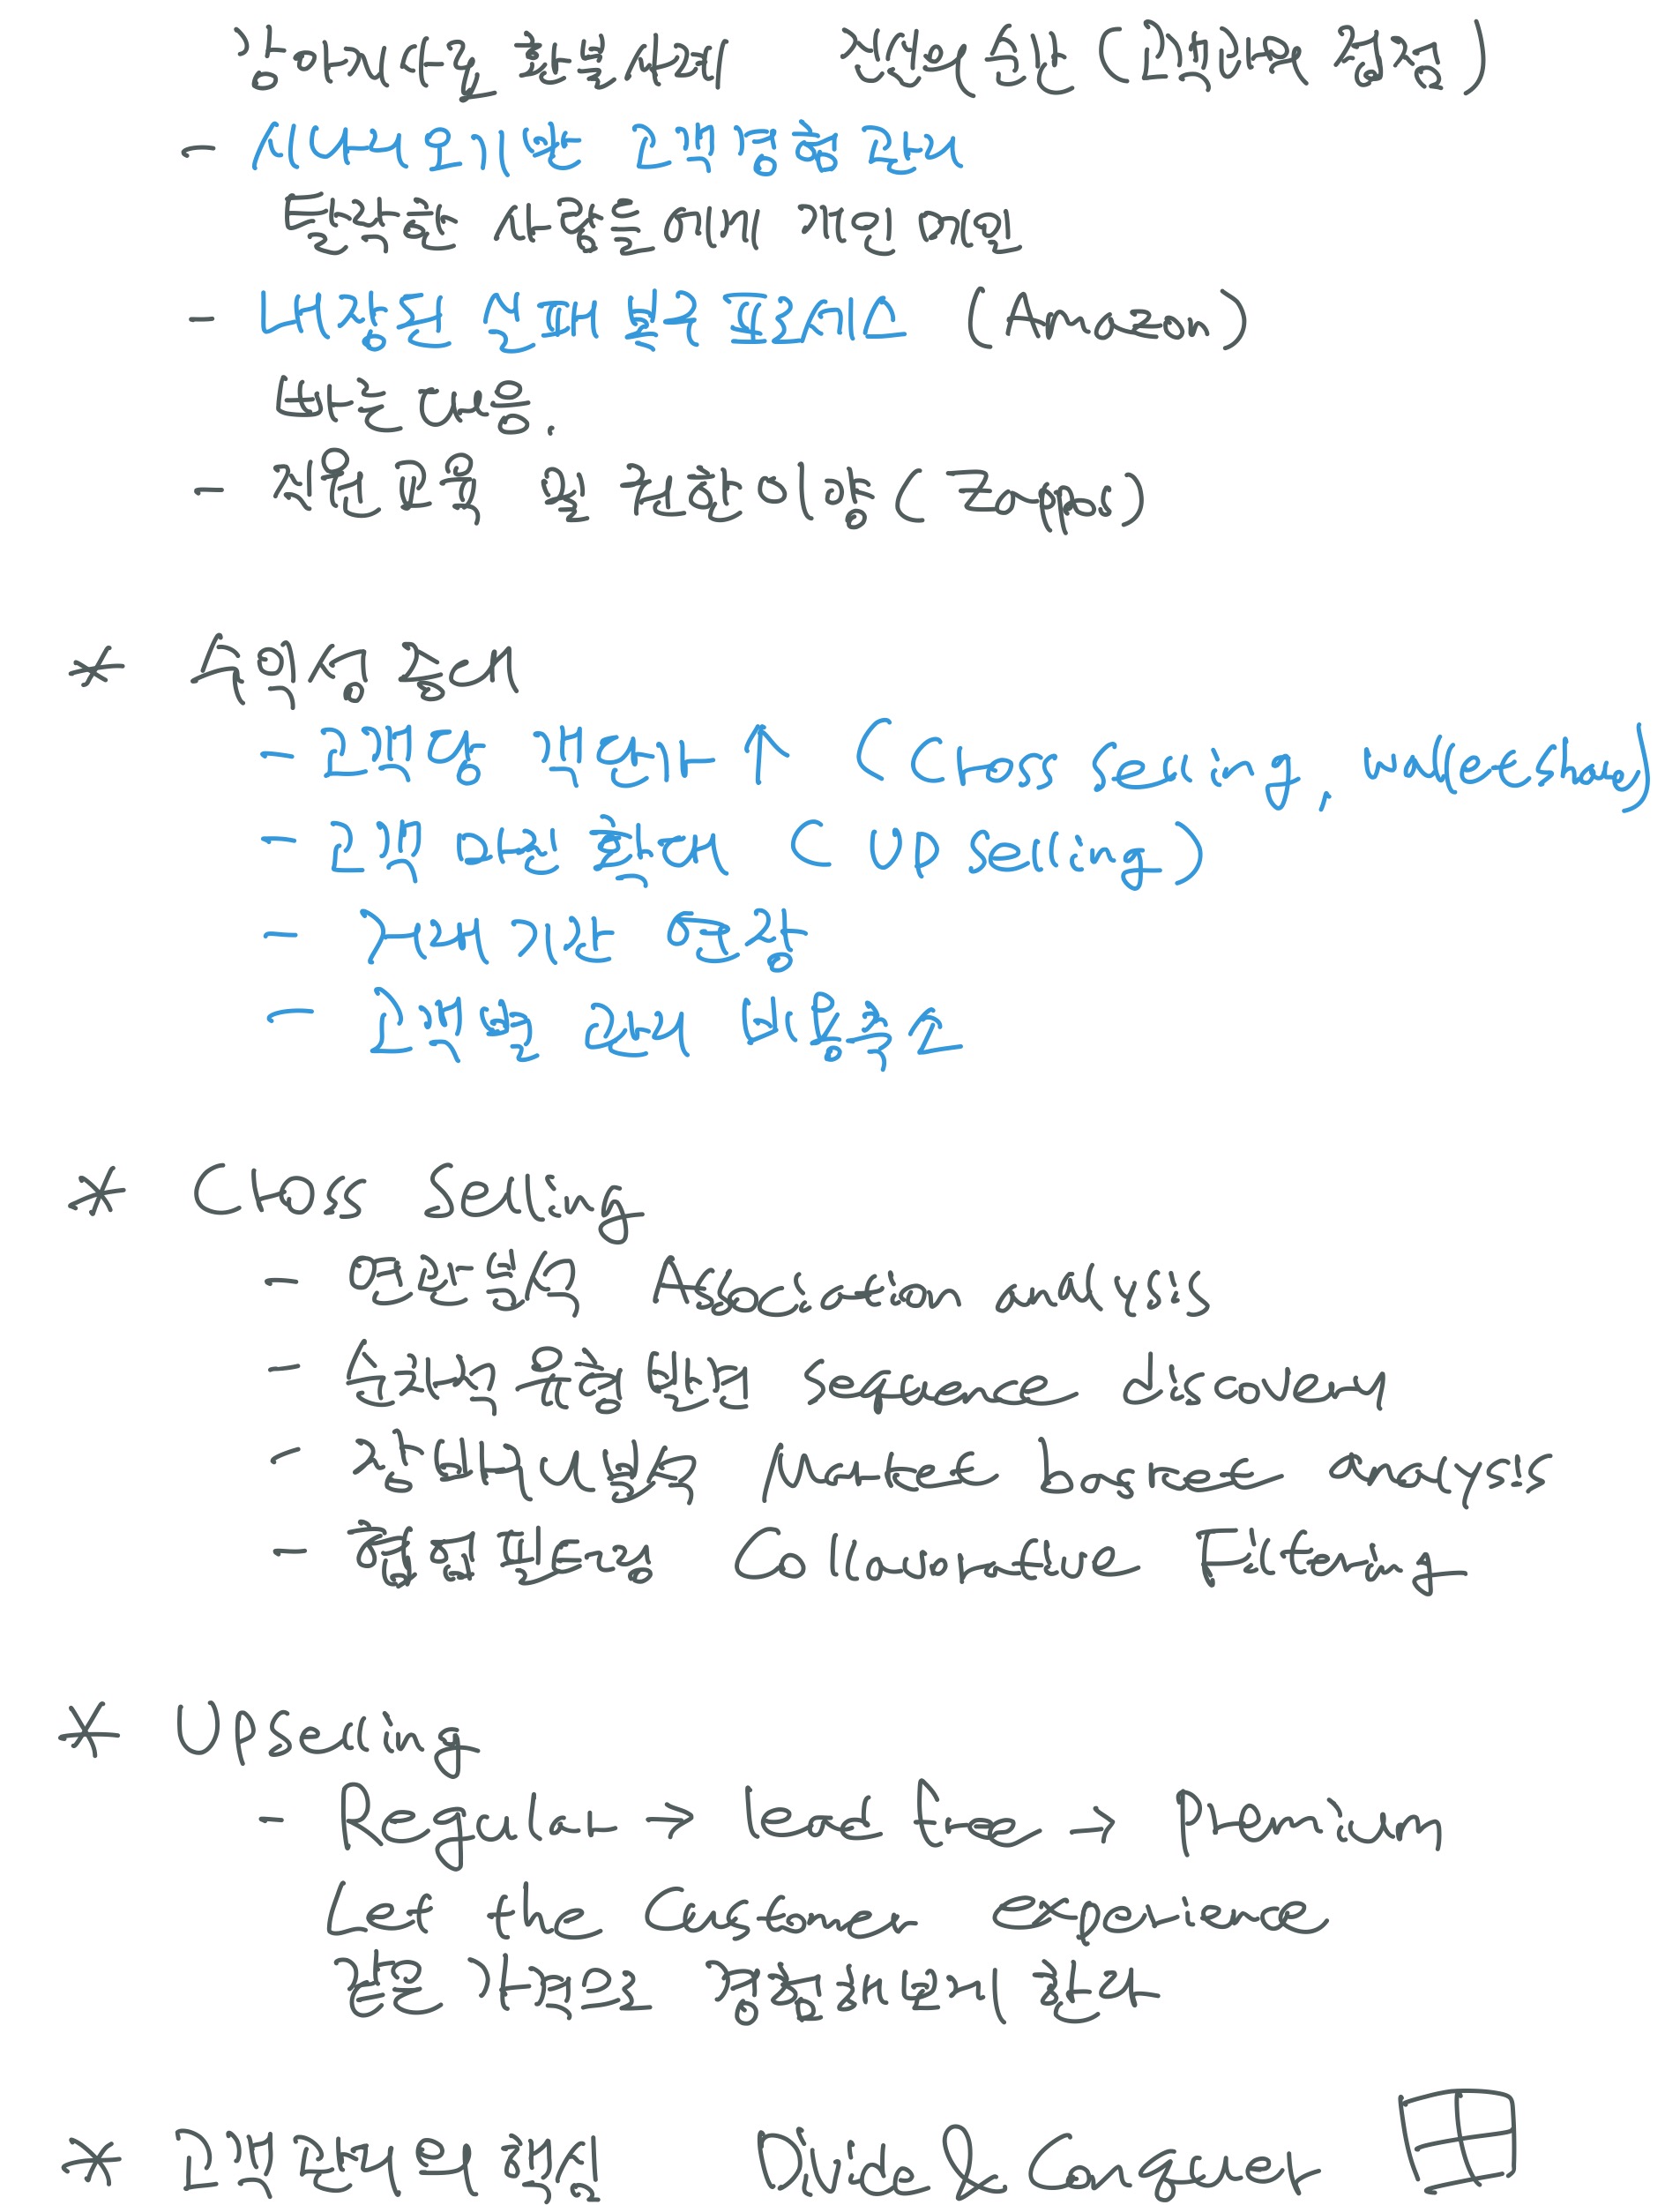 강아지사료 환불사례 진실의 순간 (고객만족 결정)
- 시나리오 기반 고객경험관리
탈락한 사람들에게 개인 메일
- 내장된 실패 발굴 프로세스 (Amazon)
빠른 대응.
- 직원교육 및 권한이양 (Zappos)
* 수익성 증대
- 고객당 객단가 ↑ (Cross selling,
- 고객 마진 확대 (UP selling)
- 거래기간 연장
- 고객별 관리 비용축소
* Cross Selling
- 연관분석 Association analysis
- 순차적유형발견 sequence discovery
- 장바구니분석 Market basket analysis
- 협업필터링 Collavorative Filtering
* UPselling
- Regular → lead free → Premium
Let the Customer experience
같은 가격으로 경험해보게 한다
* 고객관리의 핵심 Divide & Conquer